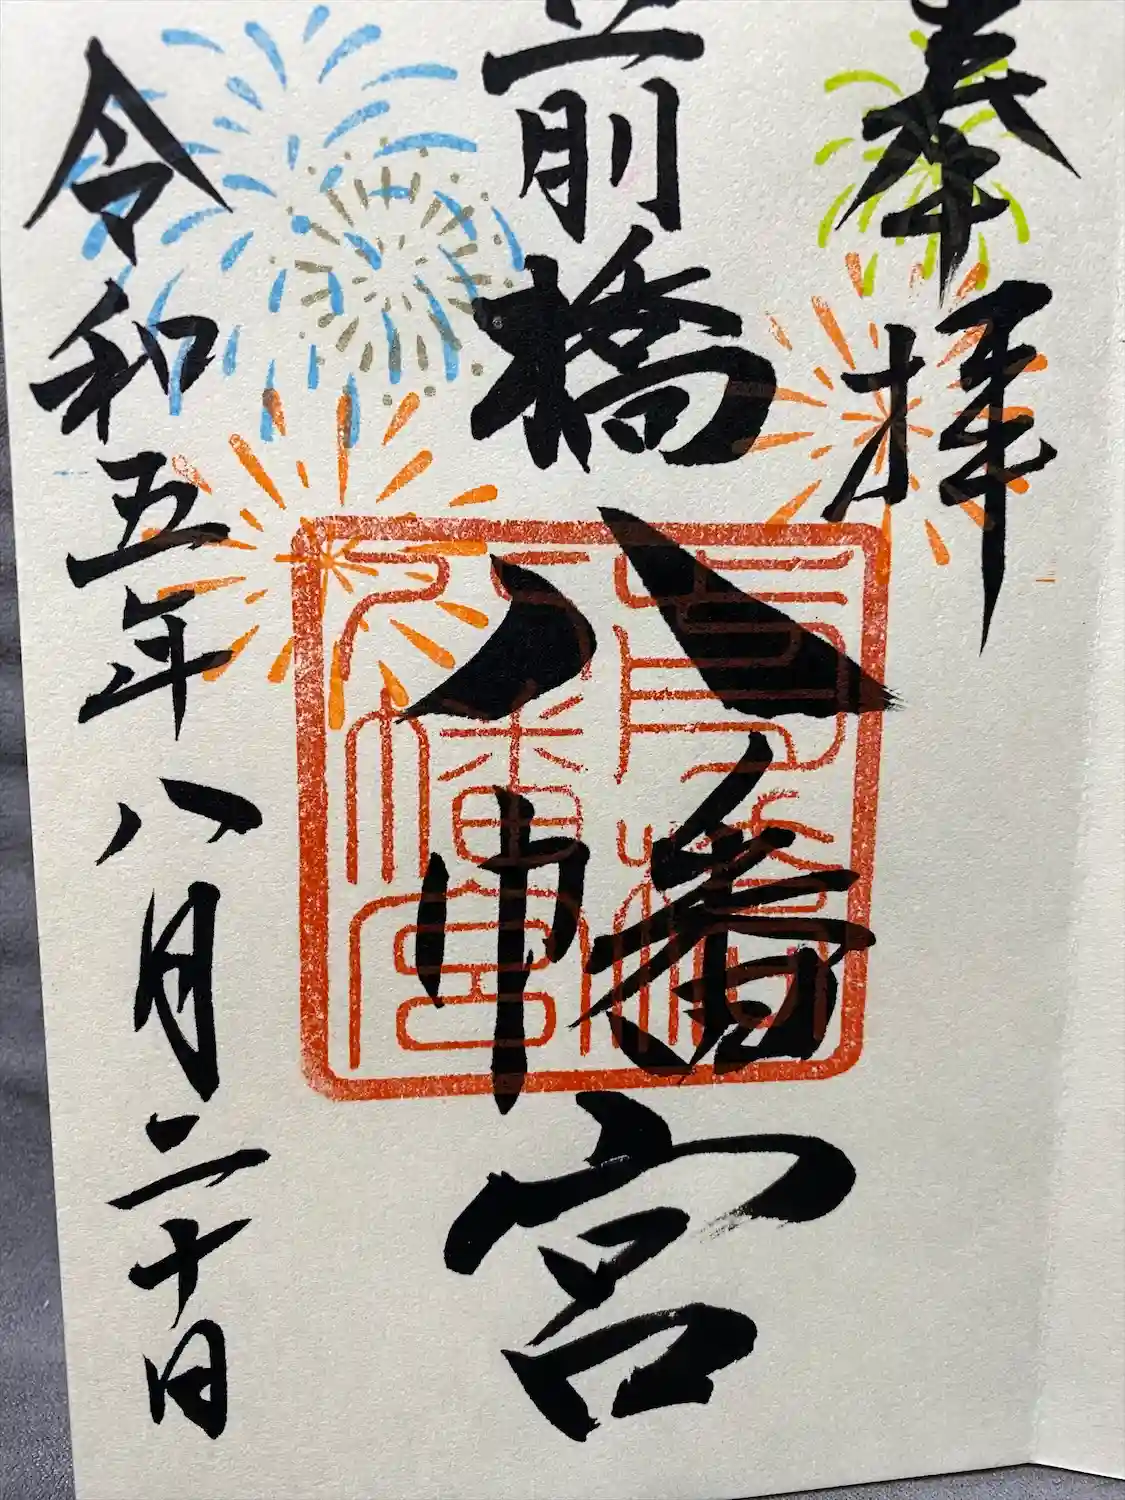 奉拝
前橋八幡宮
令和五年八月二十日
前橋
八幡宮